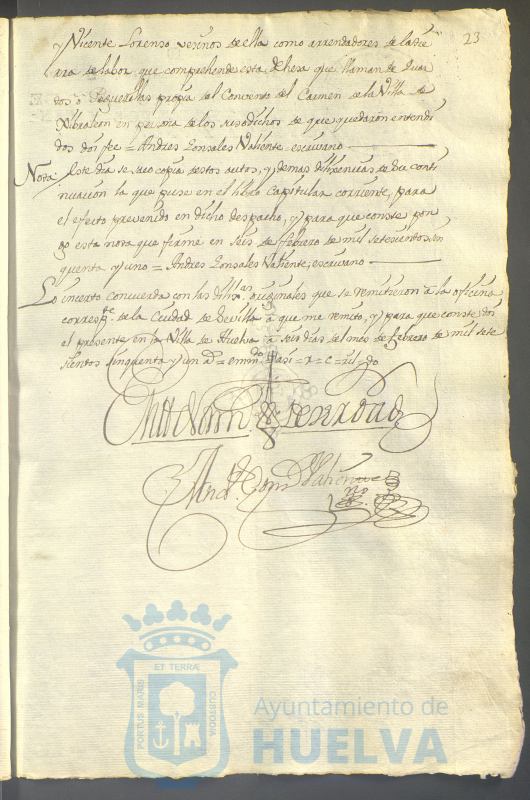 23
y Vicente Lorenso vesinos de ella como arrendadores de la tie
rra de labor que comprehende esta dehesa que llaman de Duar
dos o Segueruillas propia del Convento del Carmen de la Villa de
Xibraleon en persona de los susodichos de que quedaron entendi
dos doi fee = Andres Gonsales Valiente = escriuano
Nota Este dia se saco copia destos autos, y demas dilixensias de su conti
nuacion la que puse en el libro Capitular corriente, para
el efecto prevenido en dicho despacho, y para que conste pon
go esta nota que firme en seis de febrero de mil setesientos sin
quenta y uno = Andres Gonsales Valiente, escriuano
Lo incerto concuerda con las dilixas. originales que se remitieron a la oficina
correspte. de la Ciudad de Sevilla a que me remito, y para que conste, doi
el presente en la Villa de Huelva a seis dias del mes de febrero de mil sete
sientos sinquenta y un as =
Andˢ Gonsˢ Valiente
PORTUS MARIS
ET TERRÆ
CUSTODIA
Ayuntamiento de
HUELVA